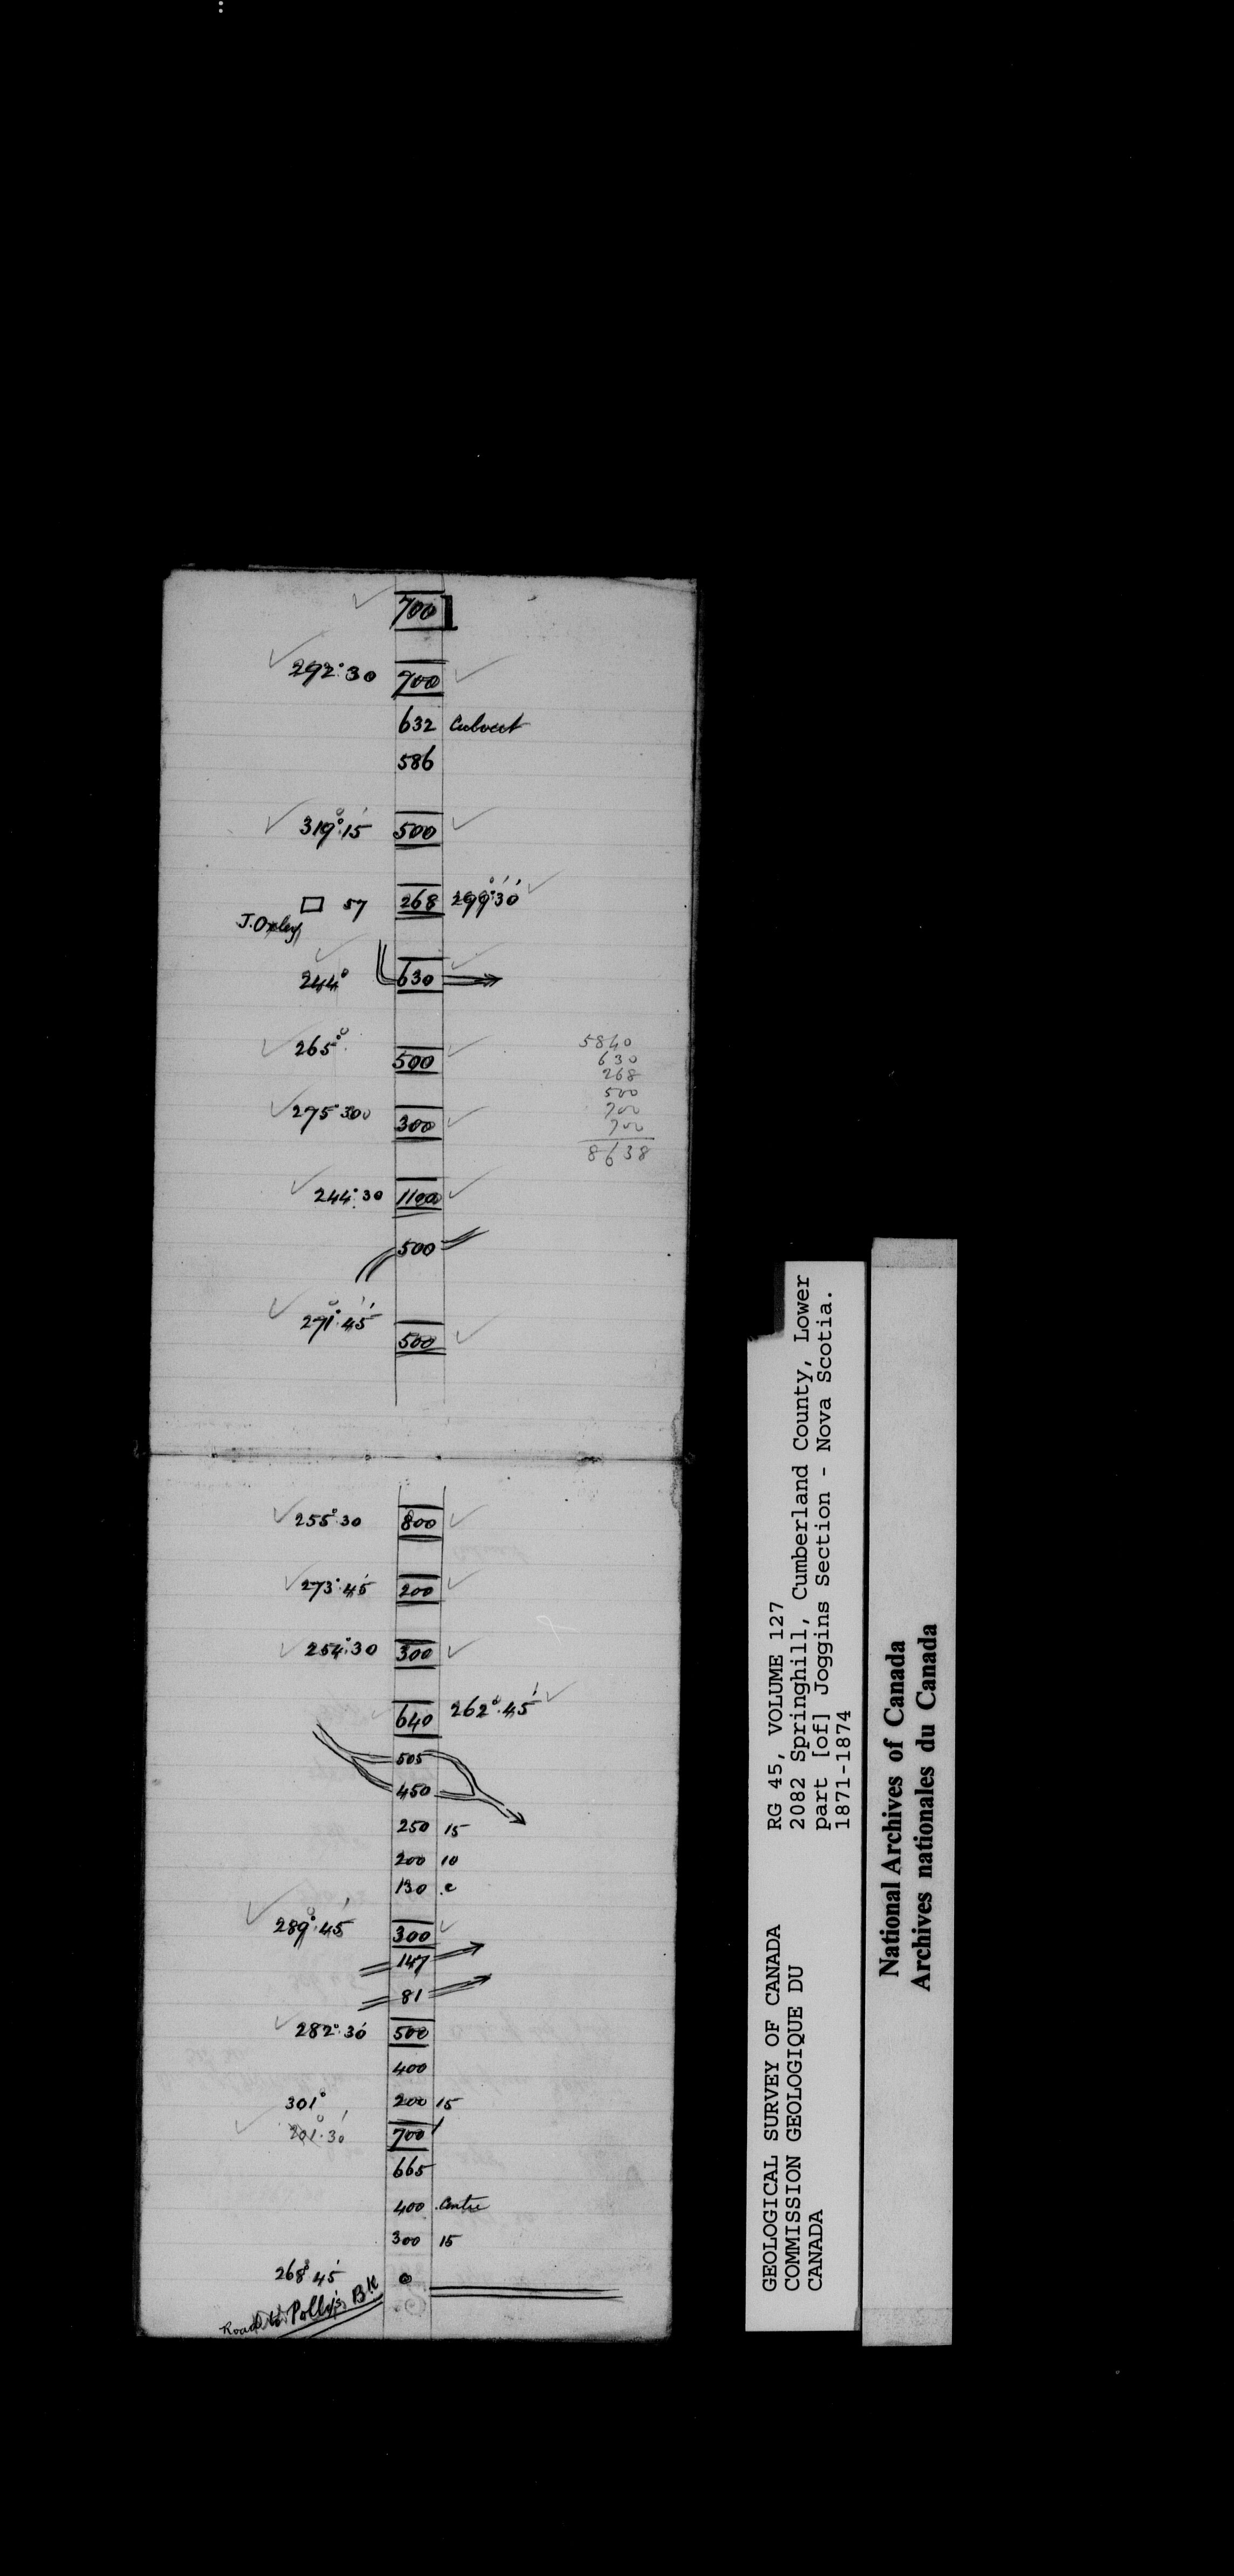 700
292°.30 700
632 Culvert
586
319°.15' 500
57 268 299°.30'
J. Oxley
244° 630
265° 500
275°.30 300
244°.30 1100
500
271°.45' 500
5840
630
268
500
700
700
8638
255°.30 800
273°.45' 200
254°.30 300
640 262°.45'
505
450
250 15
200 10
130 .c
289°.45' 300
147
81
282°.30' 500
400
301° 200 15
700
665
400 .Centre
300 15
268°.45' 0
Road to Polly's Bk
RG 45, VOLUME 127
2082 Springhill, Cumberland County, Lower
part [of] Joggins Section - Nova Scotia.
1871-1874
GEOLOGICAL SURVEY OF CANADA
COMMISSION GEOLOGIQUE DU
CANADA
National Archives of Canada
Archives nationales du Canada